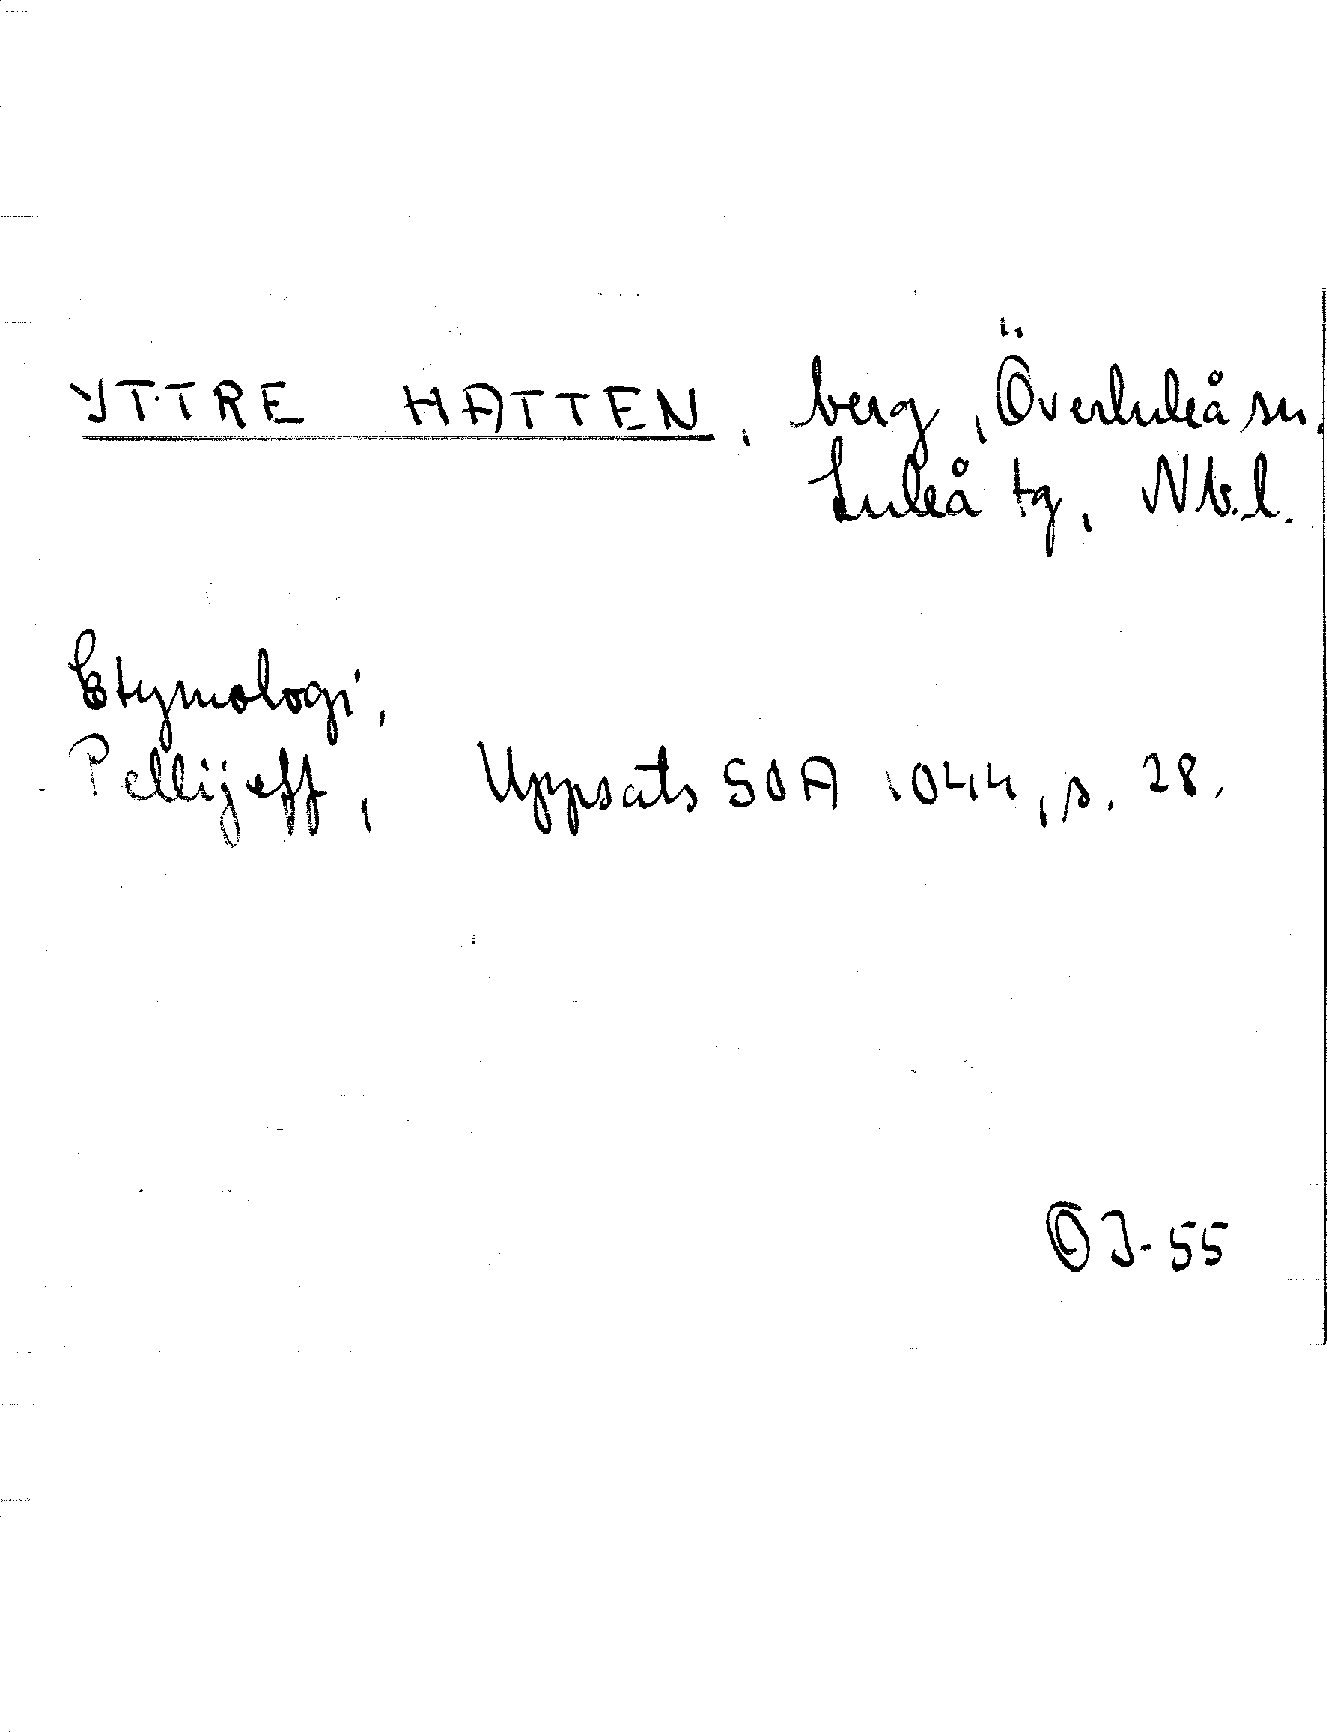 YTTRE HATTEN, berg, Överluleå sn.
Luleå tg, Nb.l.
Etymologi,
Pellijeff, Uppsats SOA 1044, s. 28.
OJ-55